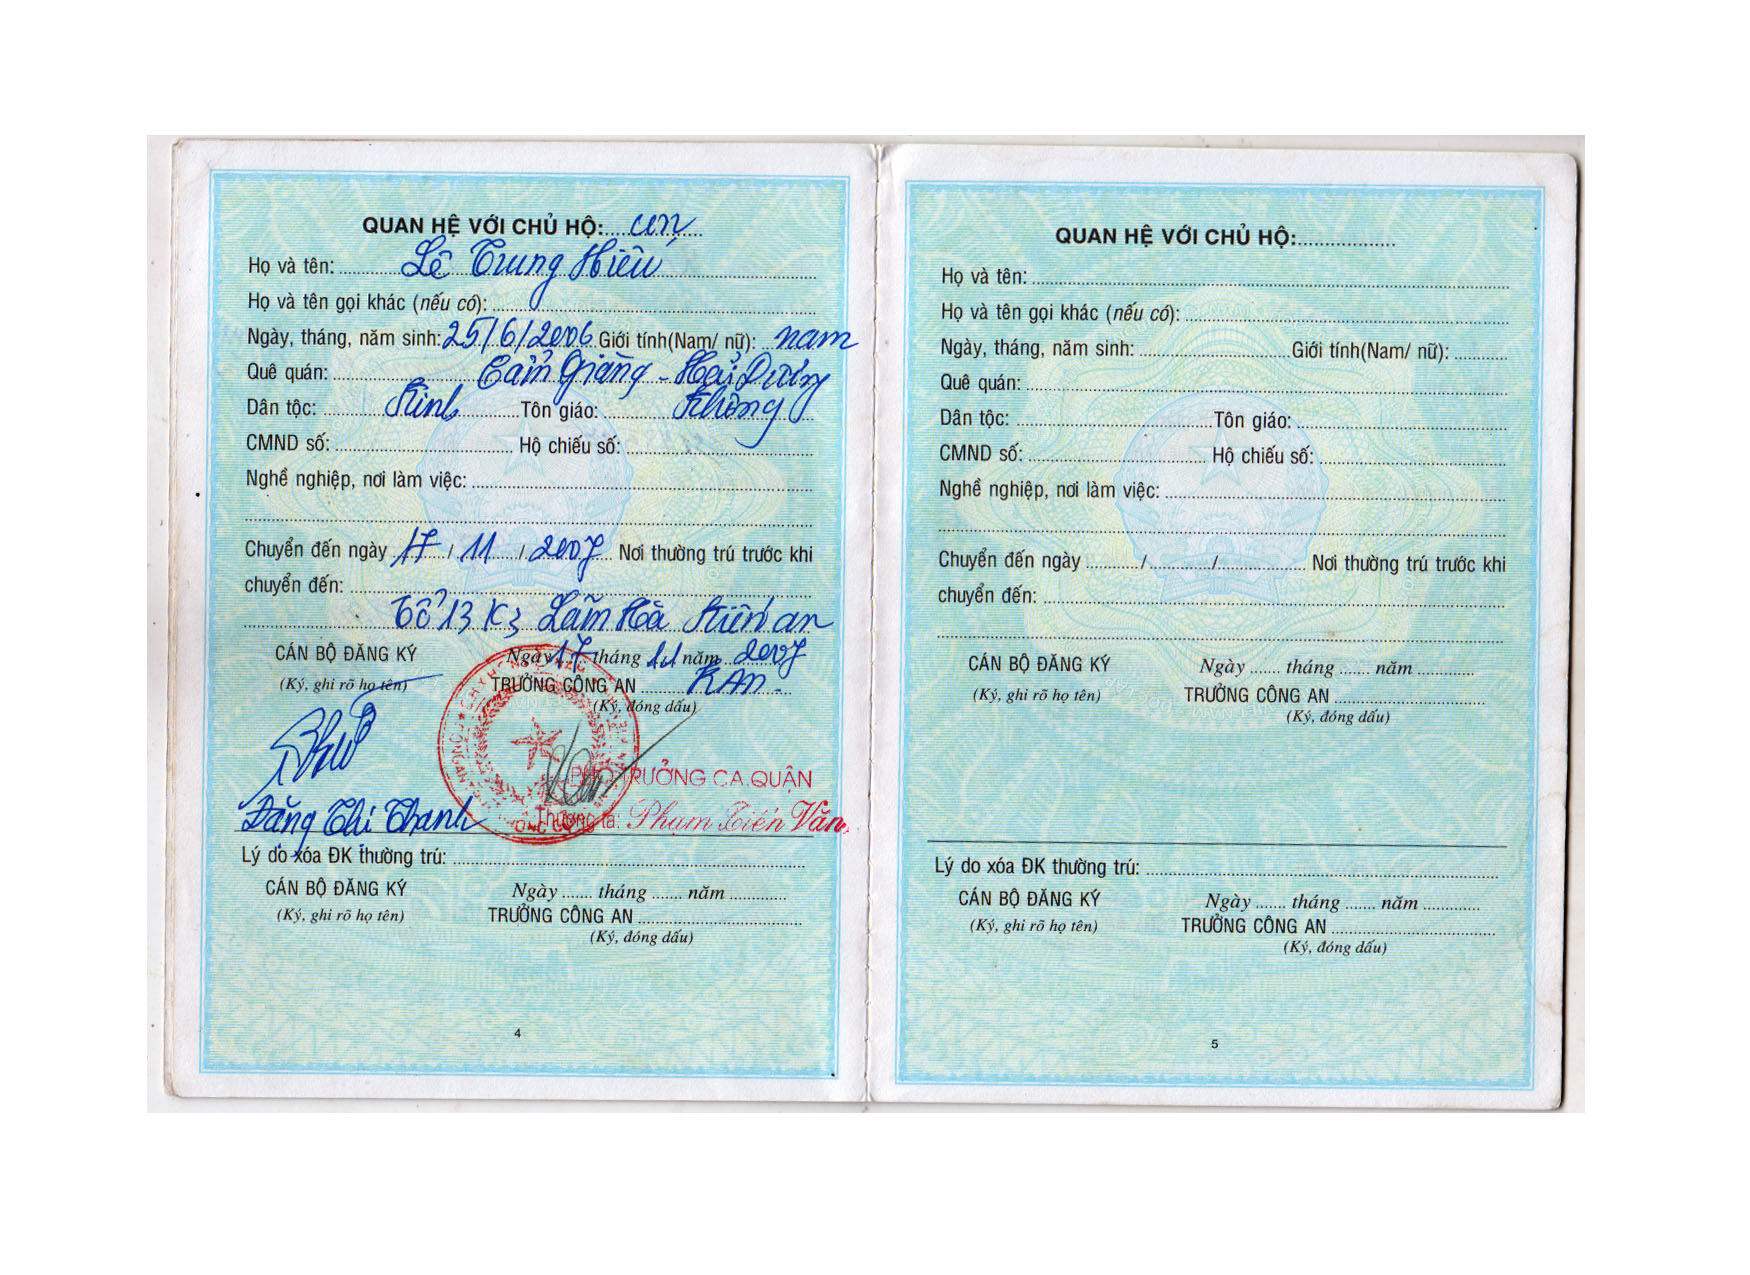 QUAN HỆ VỚI CHỦ HỘ: con
Họ và tên: Lê Trung Hiếu
Họ và tên gọi khác (nếu có):
Ngày, tháng, năm sinh: 25/6/2006 Giới tính(Nam/ nữ): nam
Quê quán: Cẩm Giàng - Hải Dương
Dân tộc: Kinh Tôn giáo: Không
CMND số: Hộ chiếu số:
Nghề nghiệp, nơi làm việc:
Chuyển đến ngày 17 / 11 / 2007 Nơi thường trú trước khi
chuyển đến:
Tổ 13 K3 Lãm Hà Kiến an
CÁN BỘ ĐĂNG KÝ Ngày 17 tháng 11 năm 2007
(Ký, ghi rõ họ tên) TRƯỞNG CÔNG AN K.An
(Ký, đóng dấu)
PHÓ TRƯỞNG CA.QUẬN
Đặng Thị Thanh Thượng tá: Phạm Tiến Văn
Lý do xóa ĐK thường trú:
CÁN BỘ ĐĂNG KÝ Ngày ....... tháng ....... năm .............
(Ký, ghi rõ họ tên) TRƯỞNG CÔNG AN
(Ký, đóng dấu)
4
QUAN HỆ VỚI CHỦ HỘ:
Họ và tên:
Họ và tên gọi khác (nếu có):
Ngày, tháng, năm sinh: Giới tính(Nam/ nữ):
Quê quán:
Dân tộc: Tôn giáo:
CMND số: Hộ chiếu số:
Nghề nghiệp, nơi làm việc:
Chuyển đến ngày ........../............/................ Nơi thường trú trước khi
chuyển đến:
CÁN BỘ ĐĂNG KÝ Ngày ....... tháng ....... năm .............
(Ký, ghi rõ họ tên) TRƯỞNG CÔNG AN
(Ký, đóng dấu)
Lý do xóa ĐK thường trú:
CÁN BỘ ĐĂNG KÝ Ngày ....... tháng ....... năm .............
(Ký, ghi rõ họ tên) TRƯỞNG CÔNG AN
(Ký, đóng dấu)
5